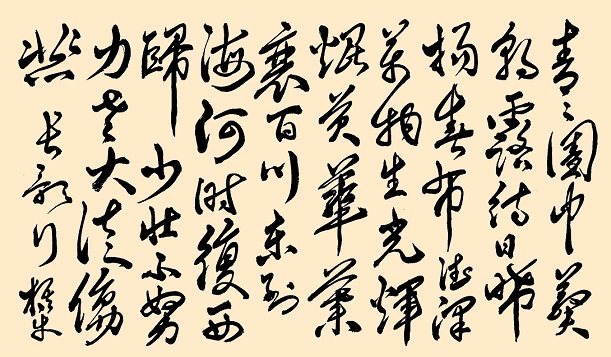 青〻園中葵
朝露待日晞
陽春布德澤
萬物生光輝
焜黃華葉
衰百川東到
海何時復西
歸少壯不努
力老大徒傷
悲 長歌行